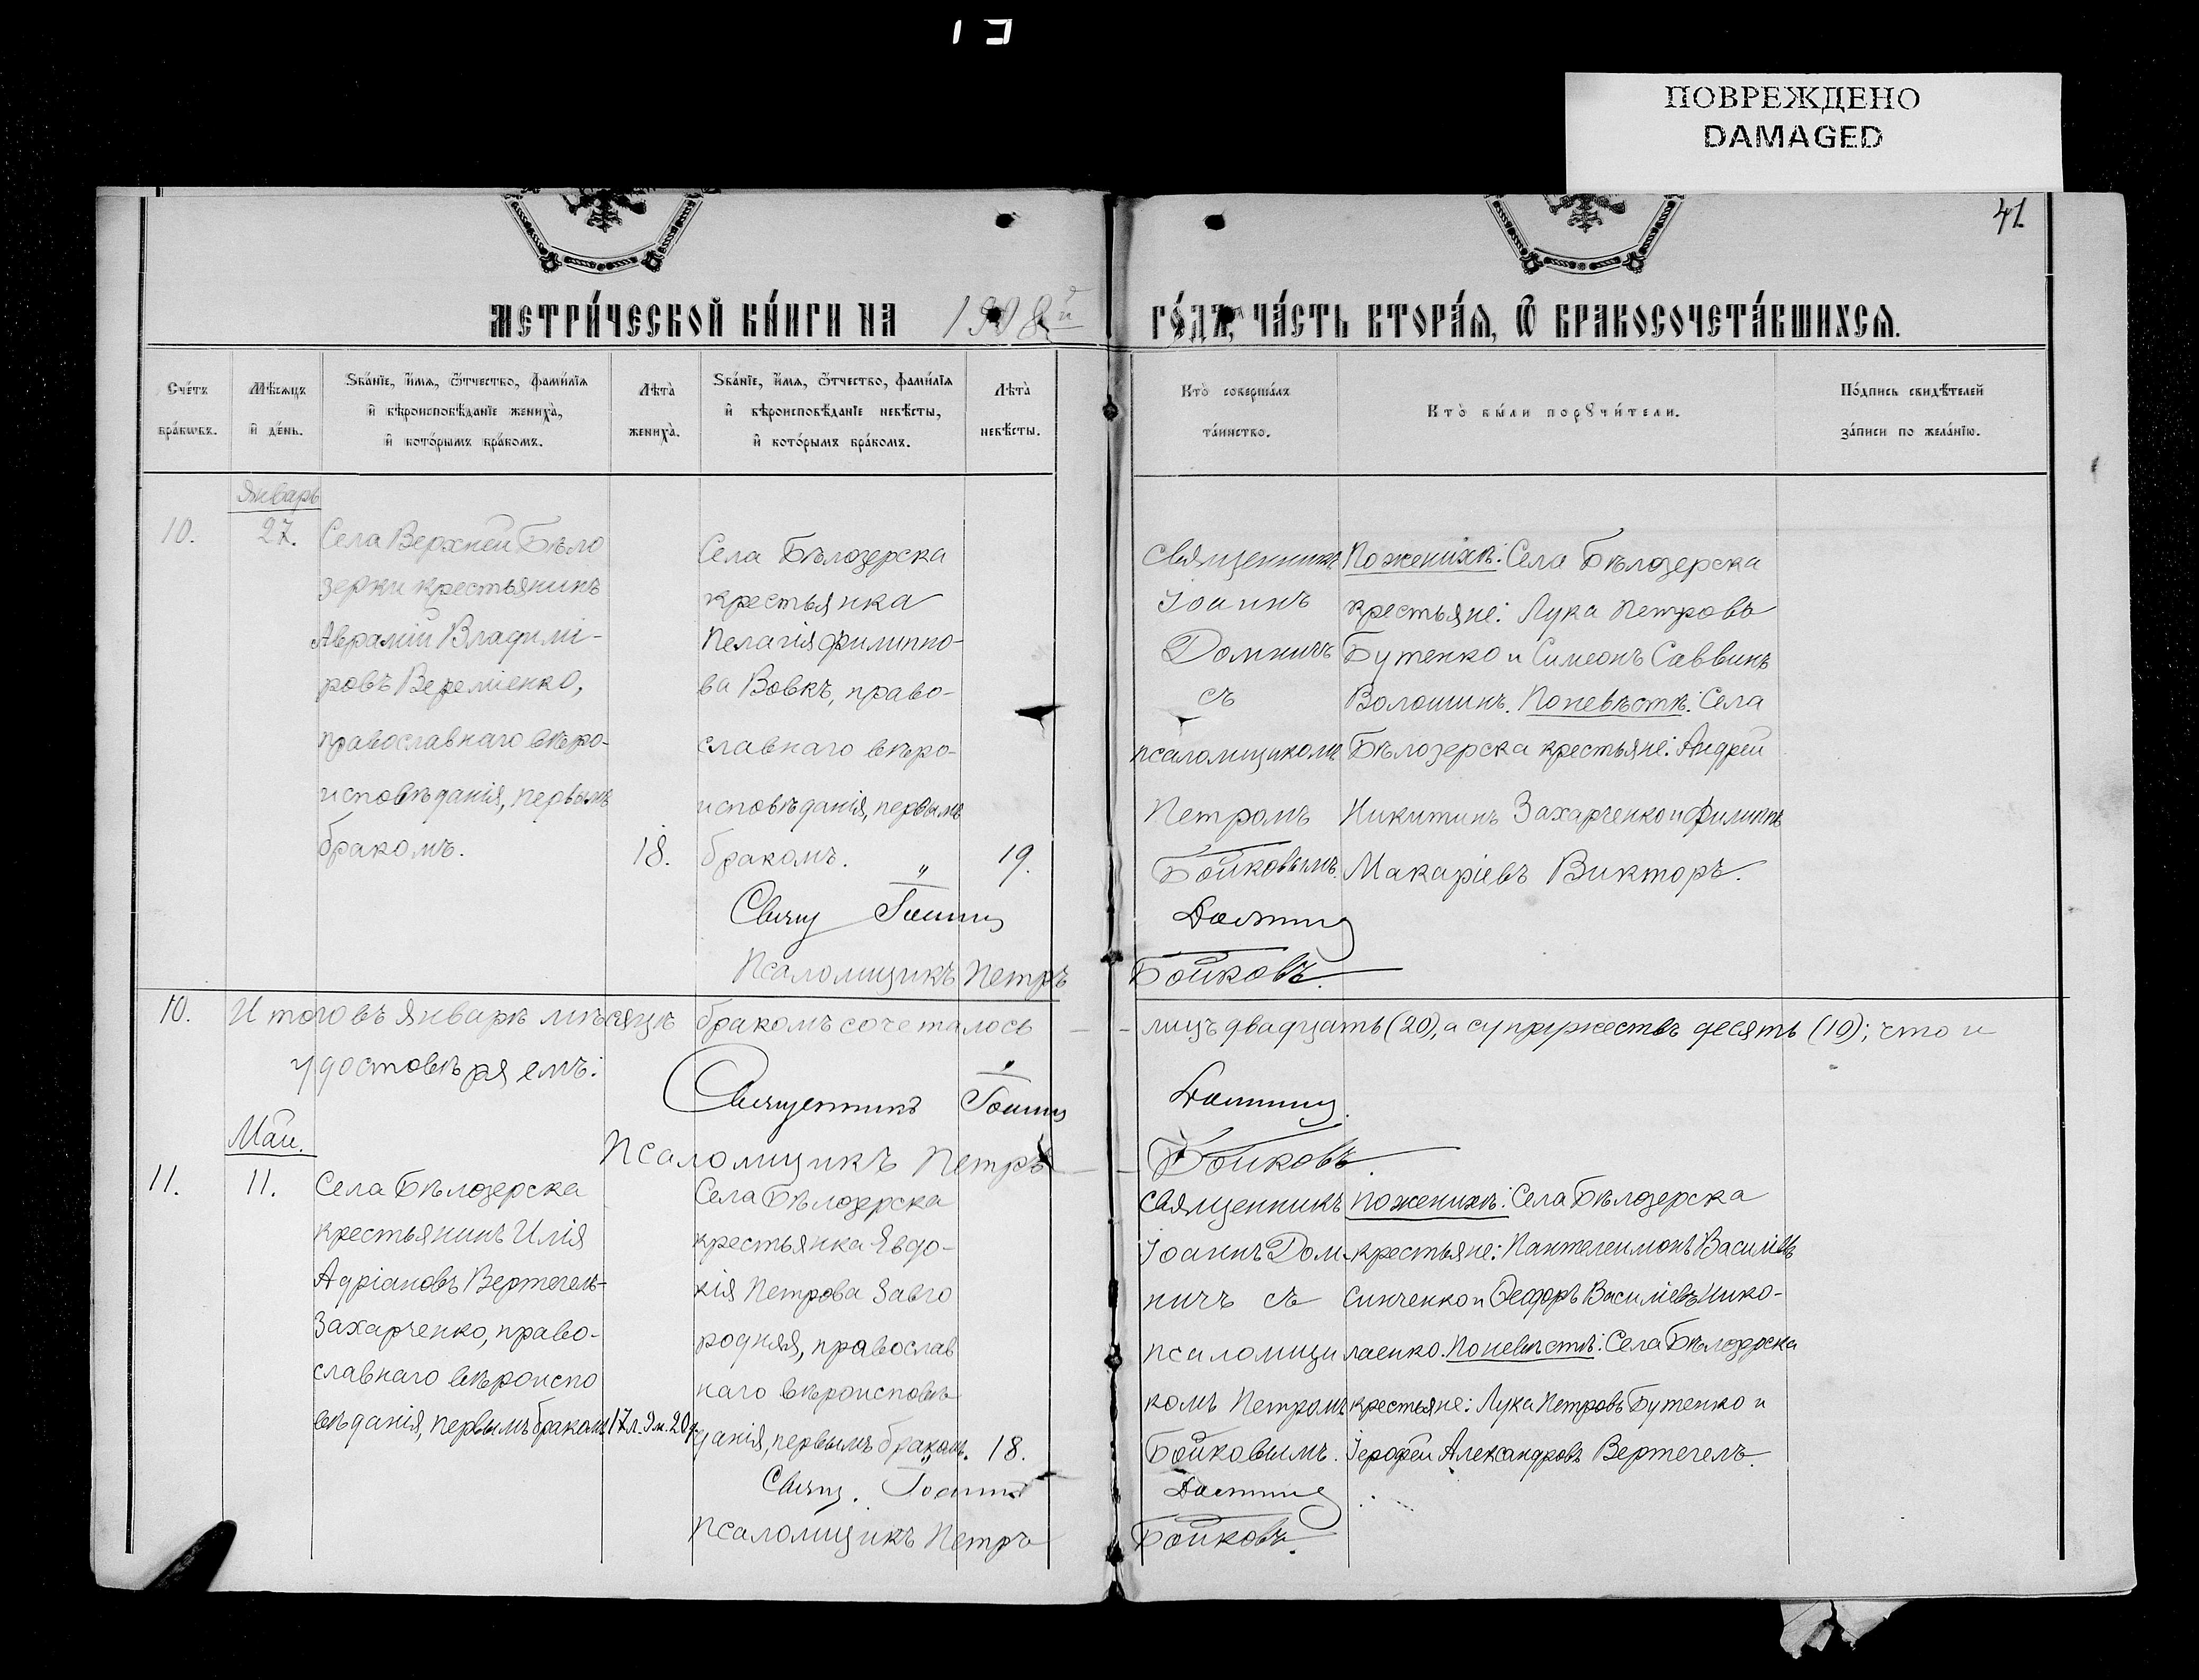 ПОВРЕЖДЕНО
DAMAGED
41
МЕТРИ́ЧЕСКОЙ КНИ́ГИ НА 1908й ГО́ДЪ, ЧА́СТЬ ВТОРА́Я, Ѿ БРАКОСОЧЕТА́ВШИХСЯ.
Сче́тъ
бра́кѡвъ.
Мѣ́сяцъ
и҆ де́нь.
Ѕва́нїе, и҆́мя, ѻ҆́тчество, фами́лїя
и҆ вѣроисповѣ́данїе жениха̀,
и҆ кото́рымъ бра́комъ.
Лѣта̀
жениха̀.
Ѕва́нїе, и҆́мя, ѻ҆́тчество, фами́лїя
и҆ вѣроисповѣ́данїе невѣ́сты,
и҆ кото́рымъ бра́комъ.
Лѣта̀
невѣ́сты.
Кто̀ соверша́лъ
та́инство.
Кто̀ бы́ли порꙋчи́тели.
По́дпись свидѣ́телей
за́писи по жела́нїю.
10.
Январь
27.
Села Верхней Бѣло
зерки крестьянинъ
Аврамій Владимі-
ровъ Вереміенко,
православнаго вѣро-
исповѣданія, первымъ
бракомъ.
18.
Села Бѣлозерска
крестьянка
Пелагія Филиппо-
ва Вовкъ, право-
славнаго вѣро-
исповѣданія, первымъ
бракомъ.
19.
Священникъ
Іоаннъ
Домничъ
съ
псаломщикомъ
Петромъ
Бойковымъ.
По женихѣ: Села Бѣлозерска
крестьяне: Лука Петровъ
Бутенко и Симеонъ Саввинъ
Волошинъ. По невѣстѣ: Села
Бѣлозерска крестьяне: Андрей
Никитинъ Захарченко и Филиппъ
Макаріевъ Викторъ.
Свящ Іоаннъ Домничъ
Псаломщикъ Петръ Бойковъ.
10. Итого въ Январѣ мѣсяцѣ бракомъ сочеталось — лицъ двадцать (20), а супружествъ десять (10); что и
удостовѣряемъ:
Священникъ Іоаннъ Домничъ.
Псаломщикъ Петръ — Бойковъ.
Май.
11.
11.
Села Бѣлозерска
крестьянинъ Илія
Адріановъ Вертегелъ-
Захарченко, право-
славнаго вѣроиспо
вѣданія, первымъ бракомъ
17 л. 9 м. 20 д.
Села Бѣлозерска
крестьянка Евдо-
кія Петрова Завго
родняя, православ
наго вѣроисповѣ
данія, первымъ бракомъ.
18.
Священникъ
Іоаннъ Дом-
ничъ съ
псаломщи
комъ Петромъ
Бойковымъ.
По женихѣ: Села Бѣлозерска
крестьяне: Пантелеимонъ Василіевъ
Синченко и Ѳеодоръ Василіевъ Нико-
лаенко. По невѣстѣ: Села Бѣлозерска
крестьяне: Лука Петровъ Бутенко и
Іерофей Александровъ Вертегелъ.
Свящ. Іоаннъ Домничъ
Псаломщикъ Петръ Бойковъ.